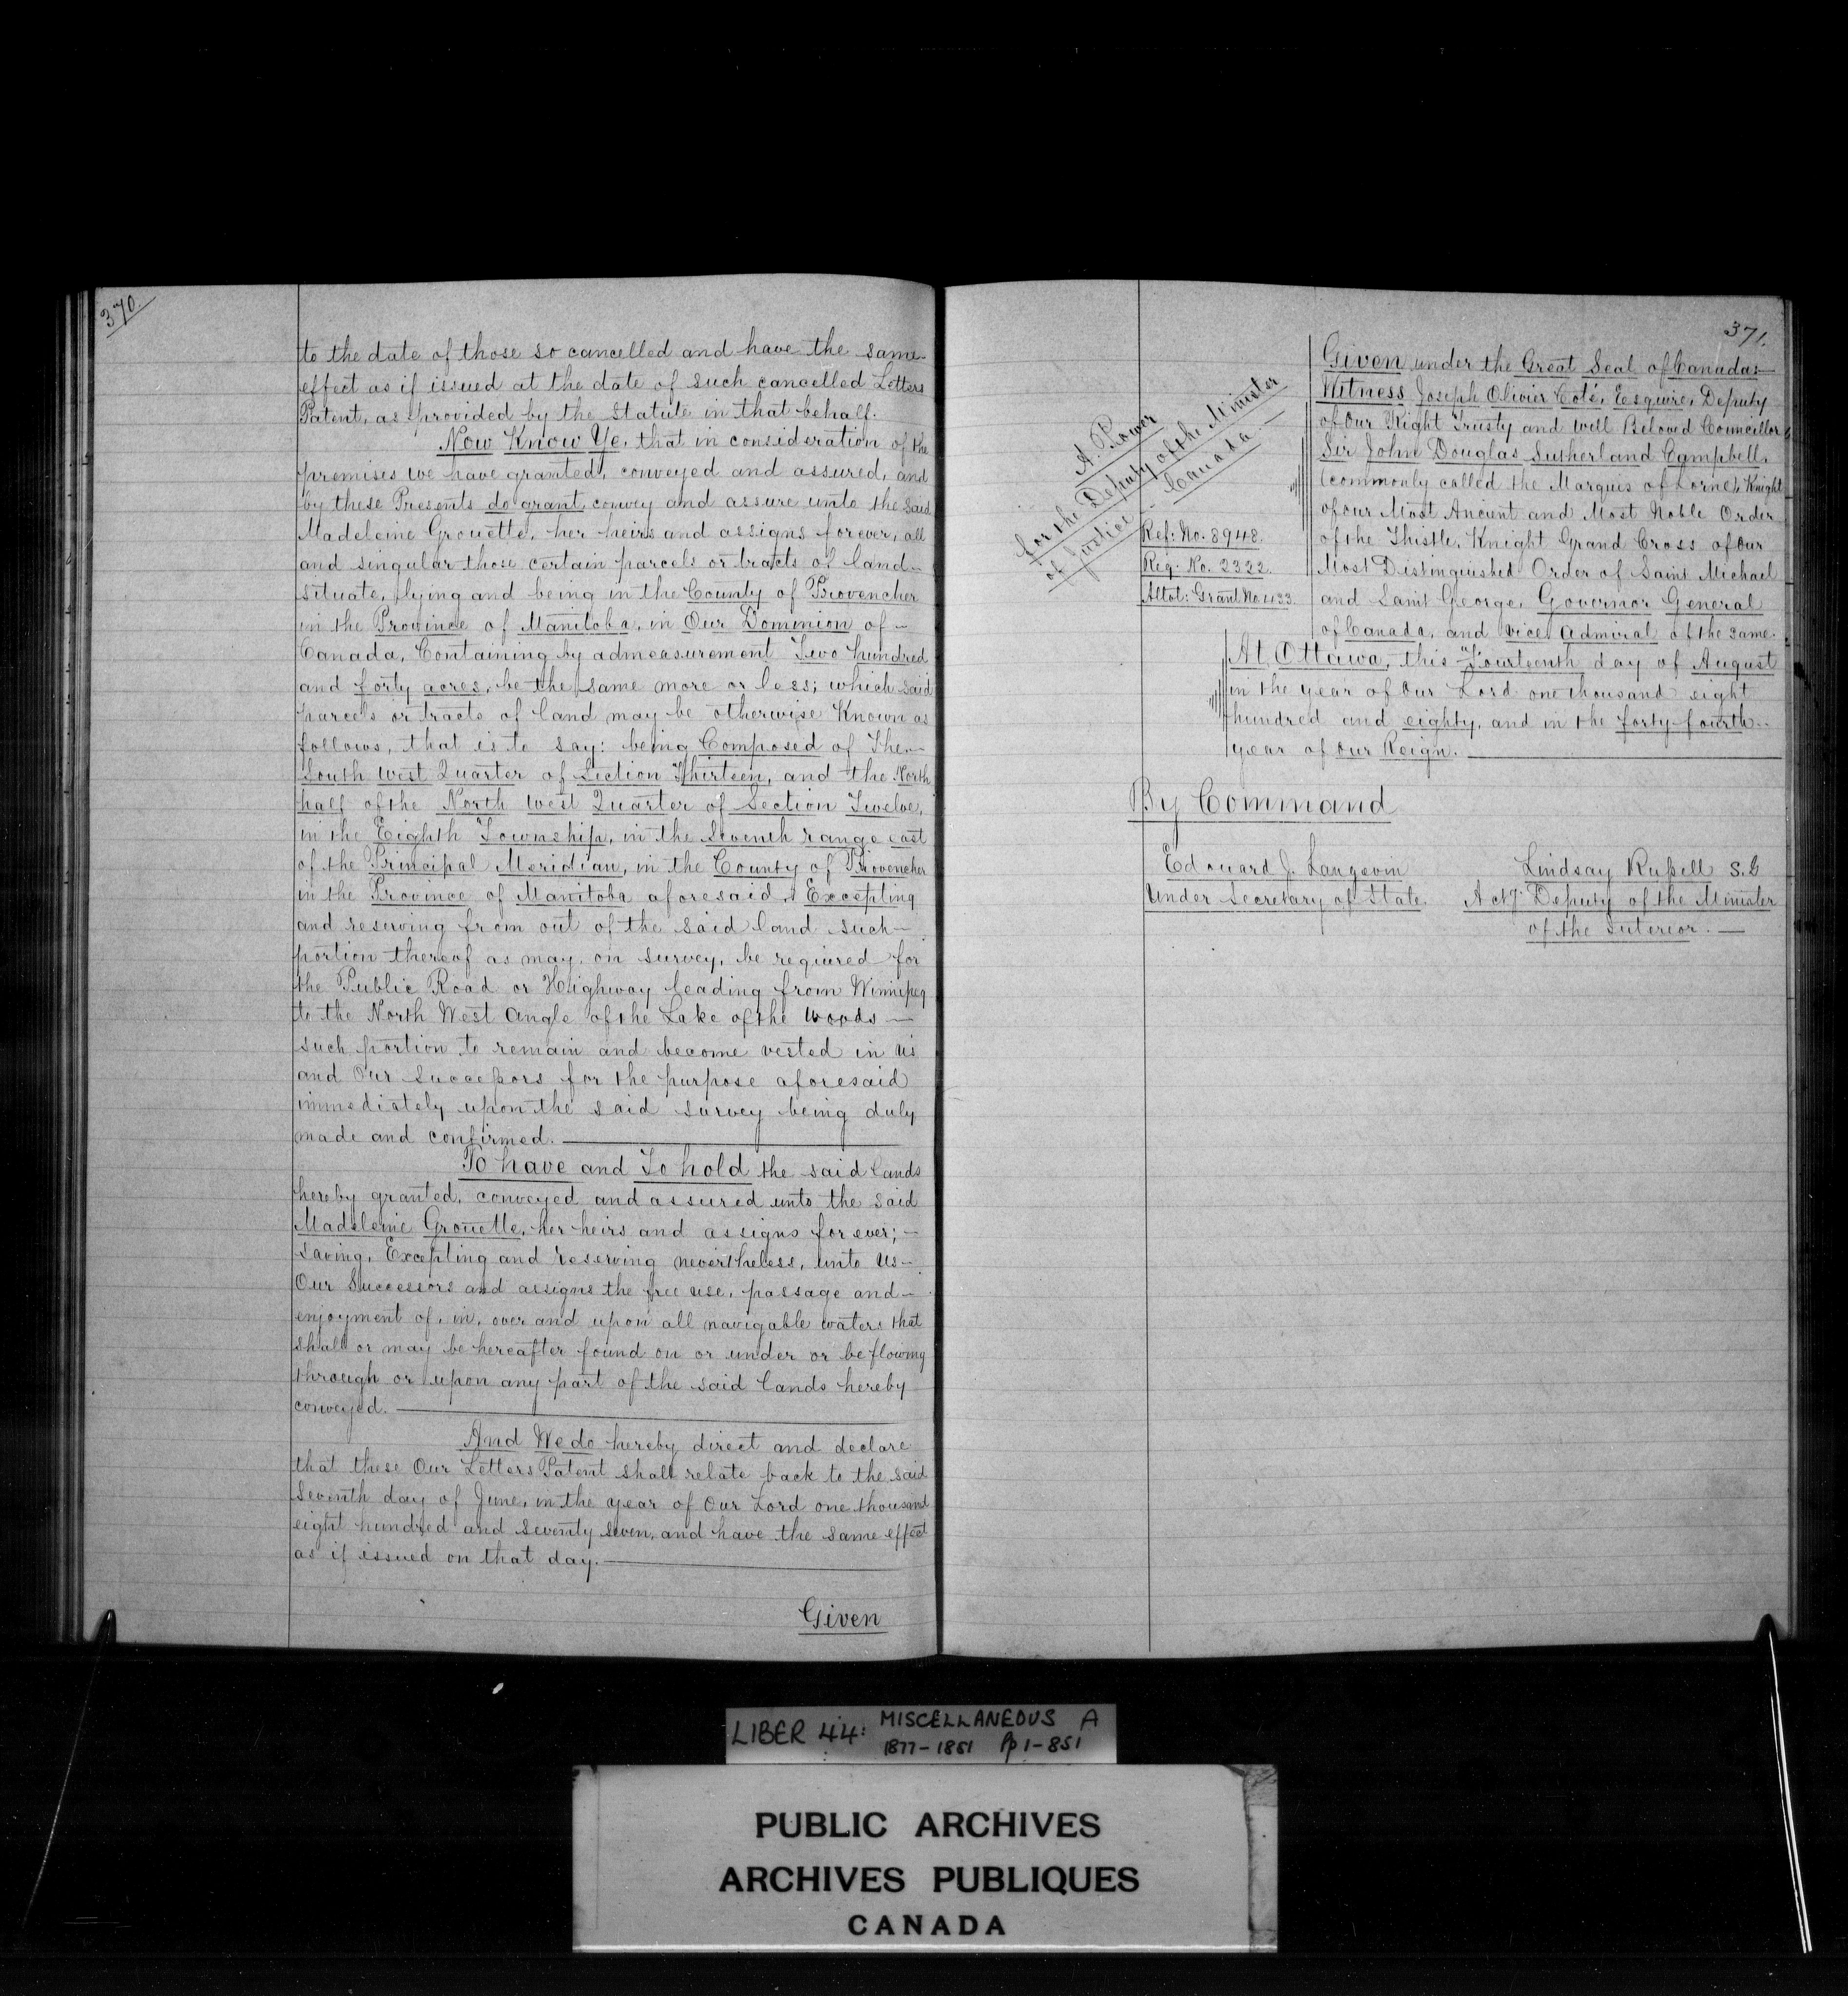 370.
to the date of those so cancelled and have the same
effect as if issued at the date of such cancelled Letters
Patent, as provided by the Statute in that behalf.
Now Know Ye, that in consideration of the
premises we have granted, conveyed and assured, and
by these Presents do grant, convey and assure unto the said
Madeleine Grouette, her heirs and assigns forever, all
and singular those certain parcels or tracts of land
situate, lying and being in the County of Provencher
in the Province of Manitoba, in Our Dominion of
Canada, Containing by admeasurement Two hundred
and forty acres, be the same more or less; which said
parcels or tracts of land may be otherwise Known as
follows, that is to say: being Composed of The
South West Quarter of Section Thirteen, and the North
half of the North West Quarter of Section Twelve,
in the Eighth Township, in the Seventh range east
of the Principal Meridian, in the County of Provencher
in the Province of Manitoba aforesaid, Excepting
and reserving from out of the said land such
portion thereof as may, on survey, be required for
the Public Road or Highway leading from Winnipeg
to the North West Angle of the Lake of the Woods —
such portion to remain and become vested in Us
and Our Successors for the purpose aforesaid
immediately upon the said survey being duly
made and confirmed.
To have and To hold the said lands
hereby granted, conveyed and assured unto the said
Madeleine Grouette, her heirs and assigns for ever; —
saving, Excepting and reserving nevertheless, unto Us —
Our Successors and assigns the free use, passage and —
enjoyment of, in, over and upon all navigable waters that
shall or may be hereafter found on or under or be flowing
through or upon any part of the said lands hereby
conveyed.
And We do hereby direct and declare
that these Our Letters Patent shall relate back to the said
Seventh day of June, in the year of Our Lord one thousand
eight hundred and seventy seven, and have the same effect
as if issued on that day.
Given
371.
A. Power
for the Deputy of the Minister
of Justice - Canada -
Ref: No. 8948.
Reg. No. 2322.
Allot: Grant No. 433.
Given under the Great Seal of Canada:
Witness Joseph Olivier Coté, Esquire, Deputy
of Our Right Trusty and Well Beloved Councillor
Sir John Douglas Sutherland Campbell,
(commonly called the Marquis of Lorne), Knight
of our Most Ancient and Most Noble Order
of the Thistle, Knight Grand Cross of Our
Most Distinguished Order of Saint Michael
and Saint George, Governor General
of Canada, and Vice Admiral of the same.
At Ottawa, this Fourteenth day of August
in the year of Our Lord one thousand eight
hundred and eighty, and in the forty fourth
year of Our Reign.
By Command
Edouard J. Langevin
Under Secretary of State.
Lindsay Russell S.G
Actg. Deputy of the Minister
of the Interior. —
LIBER 44: MISCELLANEOUS A
1877-1881 Pp 1-851
PUBLIC ARCHIVES
ARCHIVES PUBLIQUES
CANADA